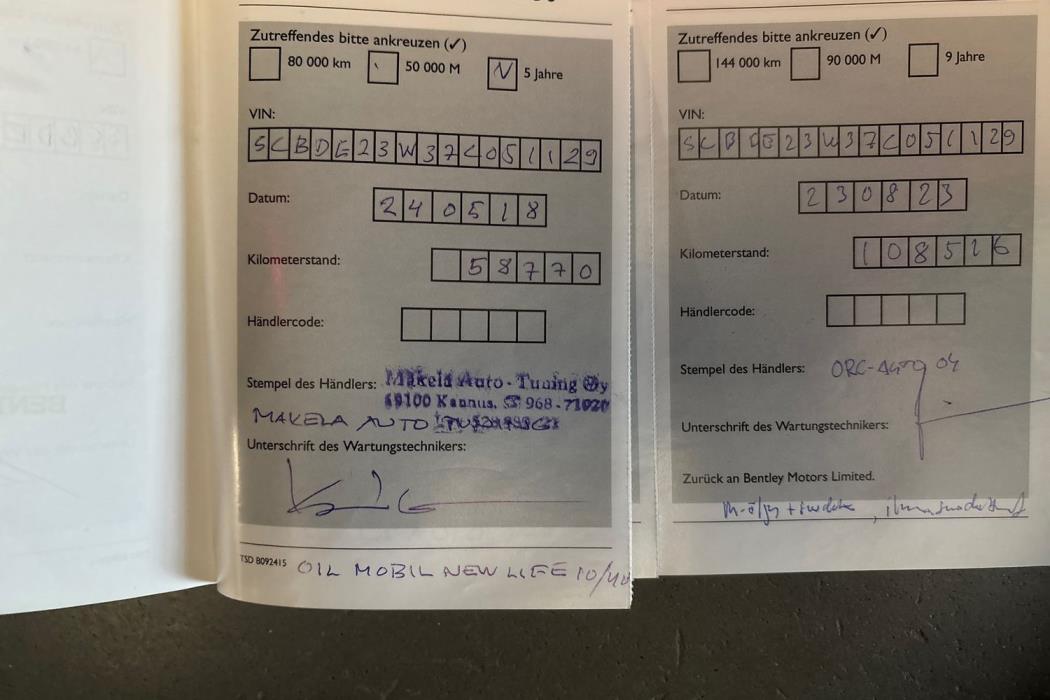 Zutreffendes bitte ankreuzen (✓)
80 000 km 50 000 M 5 Jahre
VIN:
SCBDE23W37C051129
Datum:
240518
Kilometerstand:
58770
Händlercode:
Stempel des Händlers: Mäkelä Auto-Tuning Oy
69100 Kannus. ☎ 968-71020
MAKELA AUTO
Unterschrift des Wartungstechnikers:
TSD 8092415 OIL MOBIL NEW LIFE 10/40
Zutreffendes bitte ankreuzen (✓)
144 000 km 90 000 M 9 Jahre
VIN:
SCBDE23W37C051129
Datum:
230823
Kilometerstand:
108516
Händlercode:
Stempel des Händlers: ORC-AUTO OY
Unterschrift des Wartungstechnikers:
Zurück an Bentley Motors Limited.